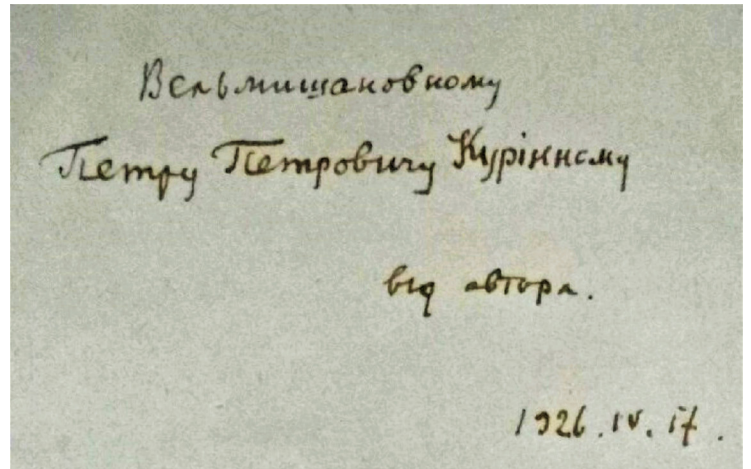 Вельмишановному
Петру Петровичу Курінному
від автора.
1926.IV.17.